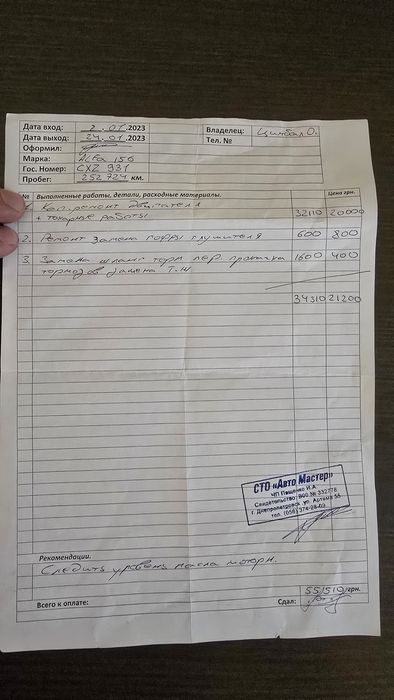 Дата вход: 2.01.2023
Дата выход: 24.01.2023
Оформил:
Марка: Alfa 156
Гос. Номер: CXZ 931
Пробег: 252 724 км.
Владелец: Цимбал О.
Тел. №
№ Выполненные работы, детали, расходные материалы. Цена грн.
1. Кап. ремонт двигателя
+ токарные работы 32110 20000
2. Ремонт замена гофры глушителя 600 800
3. Замена шланг торм пер. прокачка 1600 400
тормозов замена Т.Ж
34310 21200
СТО «Авто Мастер»
ЧП Пащенко И.А.
Свидетельство: В00 № 332778
г. Днепропетровск ул. Артема 55
тел. (056) 374-28-09
Рекомендации.
Следить уровень масла моторн.
Всего к оплате: 55510 грн.
Сдал: